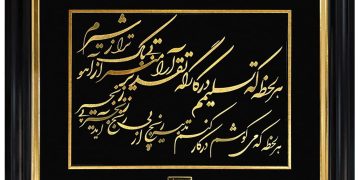 هر لحظه که تسلیمم در کارگه تقدیر آرامتر از آهو بی باک ترم از شیر
هر لحظه که می کوشم در کار کنم تدبیر رنج از پی رنج آید زنجیر پی زنجیر